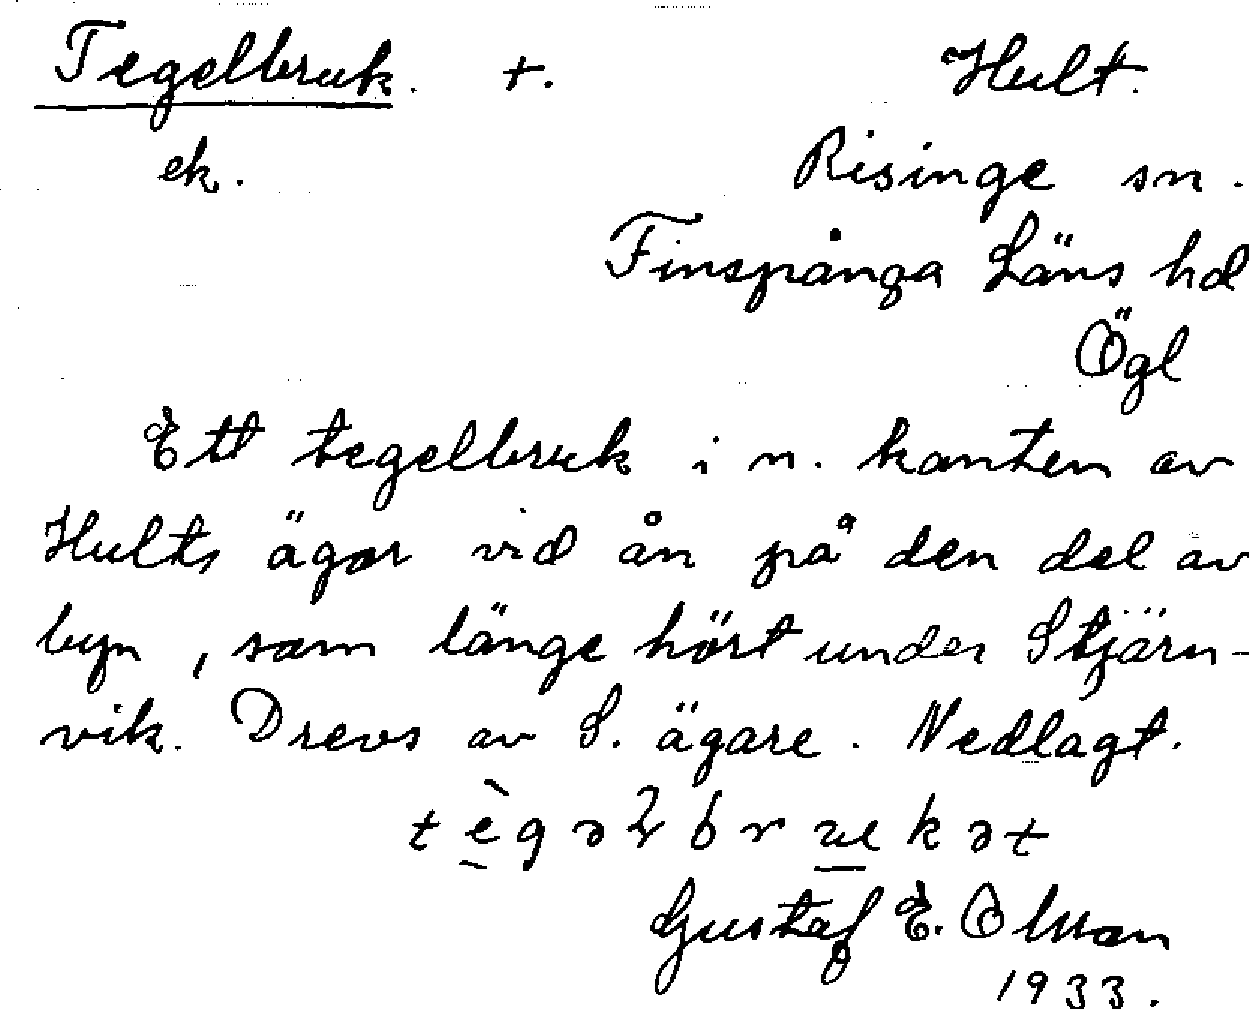 Tegelbruk. +. Hult.
ek. Risinge sn.
Finspånga Läns hd
Ögl
Ett tegelbruk i n. kanten av
Hults ägor vid ån på den del av
byn, som länge hört under Stjärn-
vik. Drevs av S. ägare. Nedlagt.
Gustaf E. Olsson
1933.